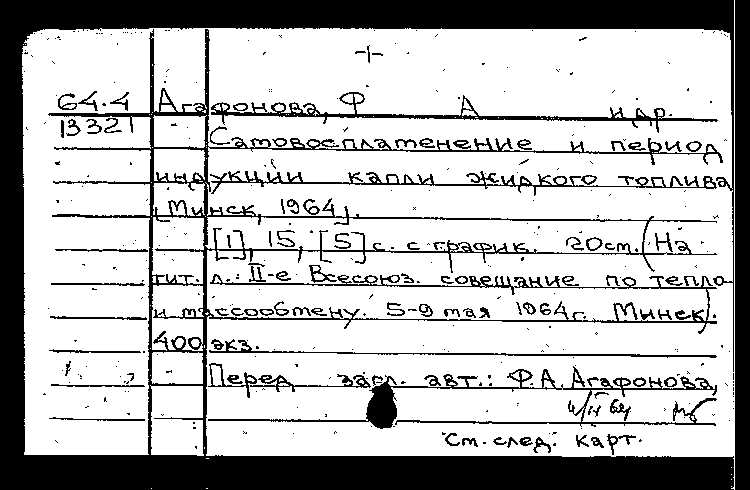 64.4 Агафонова, Ф А и др.
13321
Самовоспламенение и период
индукции капли жидкого топлива
[Минск, 1964].
[1], 15, [5] с. с график. 20см. (На
тит. л.: II-е Всесоюз. совещание по тепло-
и массообмену. 5-9 мая 1964г. Минск).
400 экз.
Перед загл. авт.: Ф.А. Агафонова,
См. след. карт.